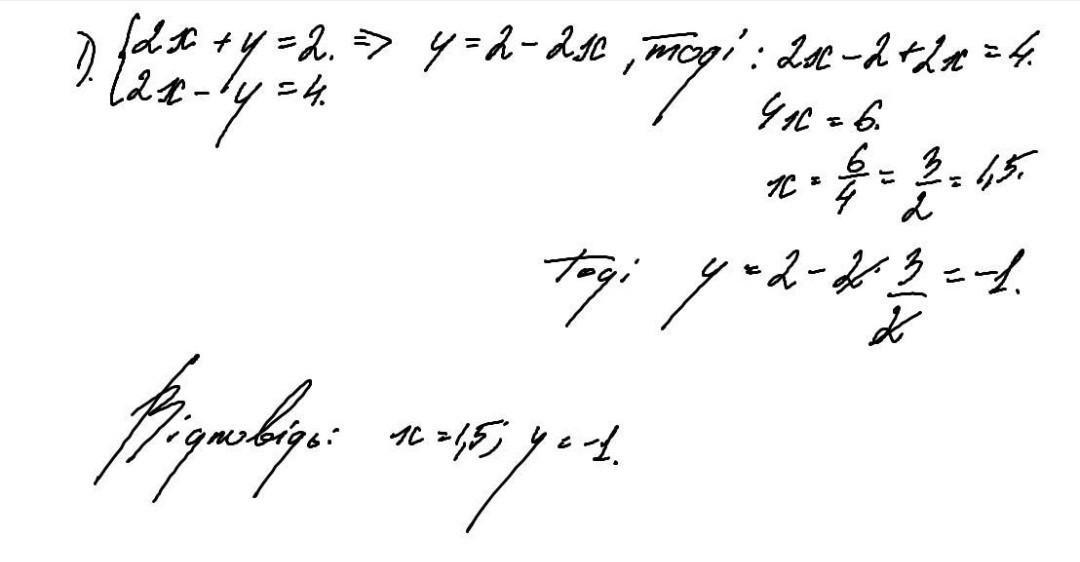 1). { 2x + y = 2. => y = 2 - 2x , тоді : 2x - 2 + 2x = 4.
2x - y = 4.
4x = 6.
x = 6/4 = 3/2 = 1,5.
Тоді y = 2 - 2 · 3/2 = -1.
Відповідь: x = 1,5; y = -1.